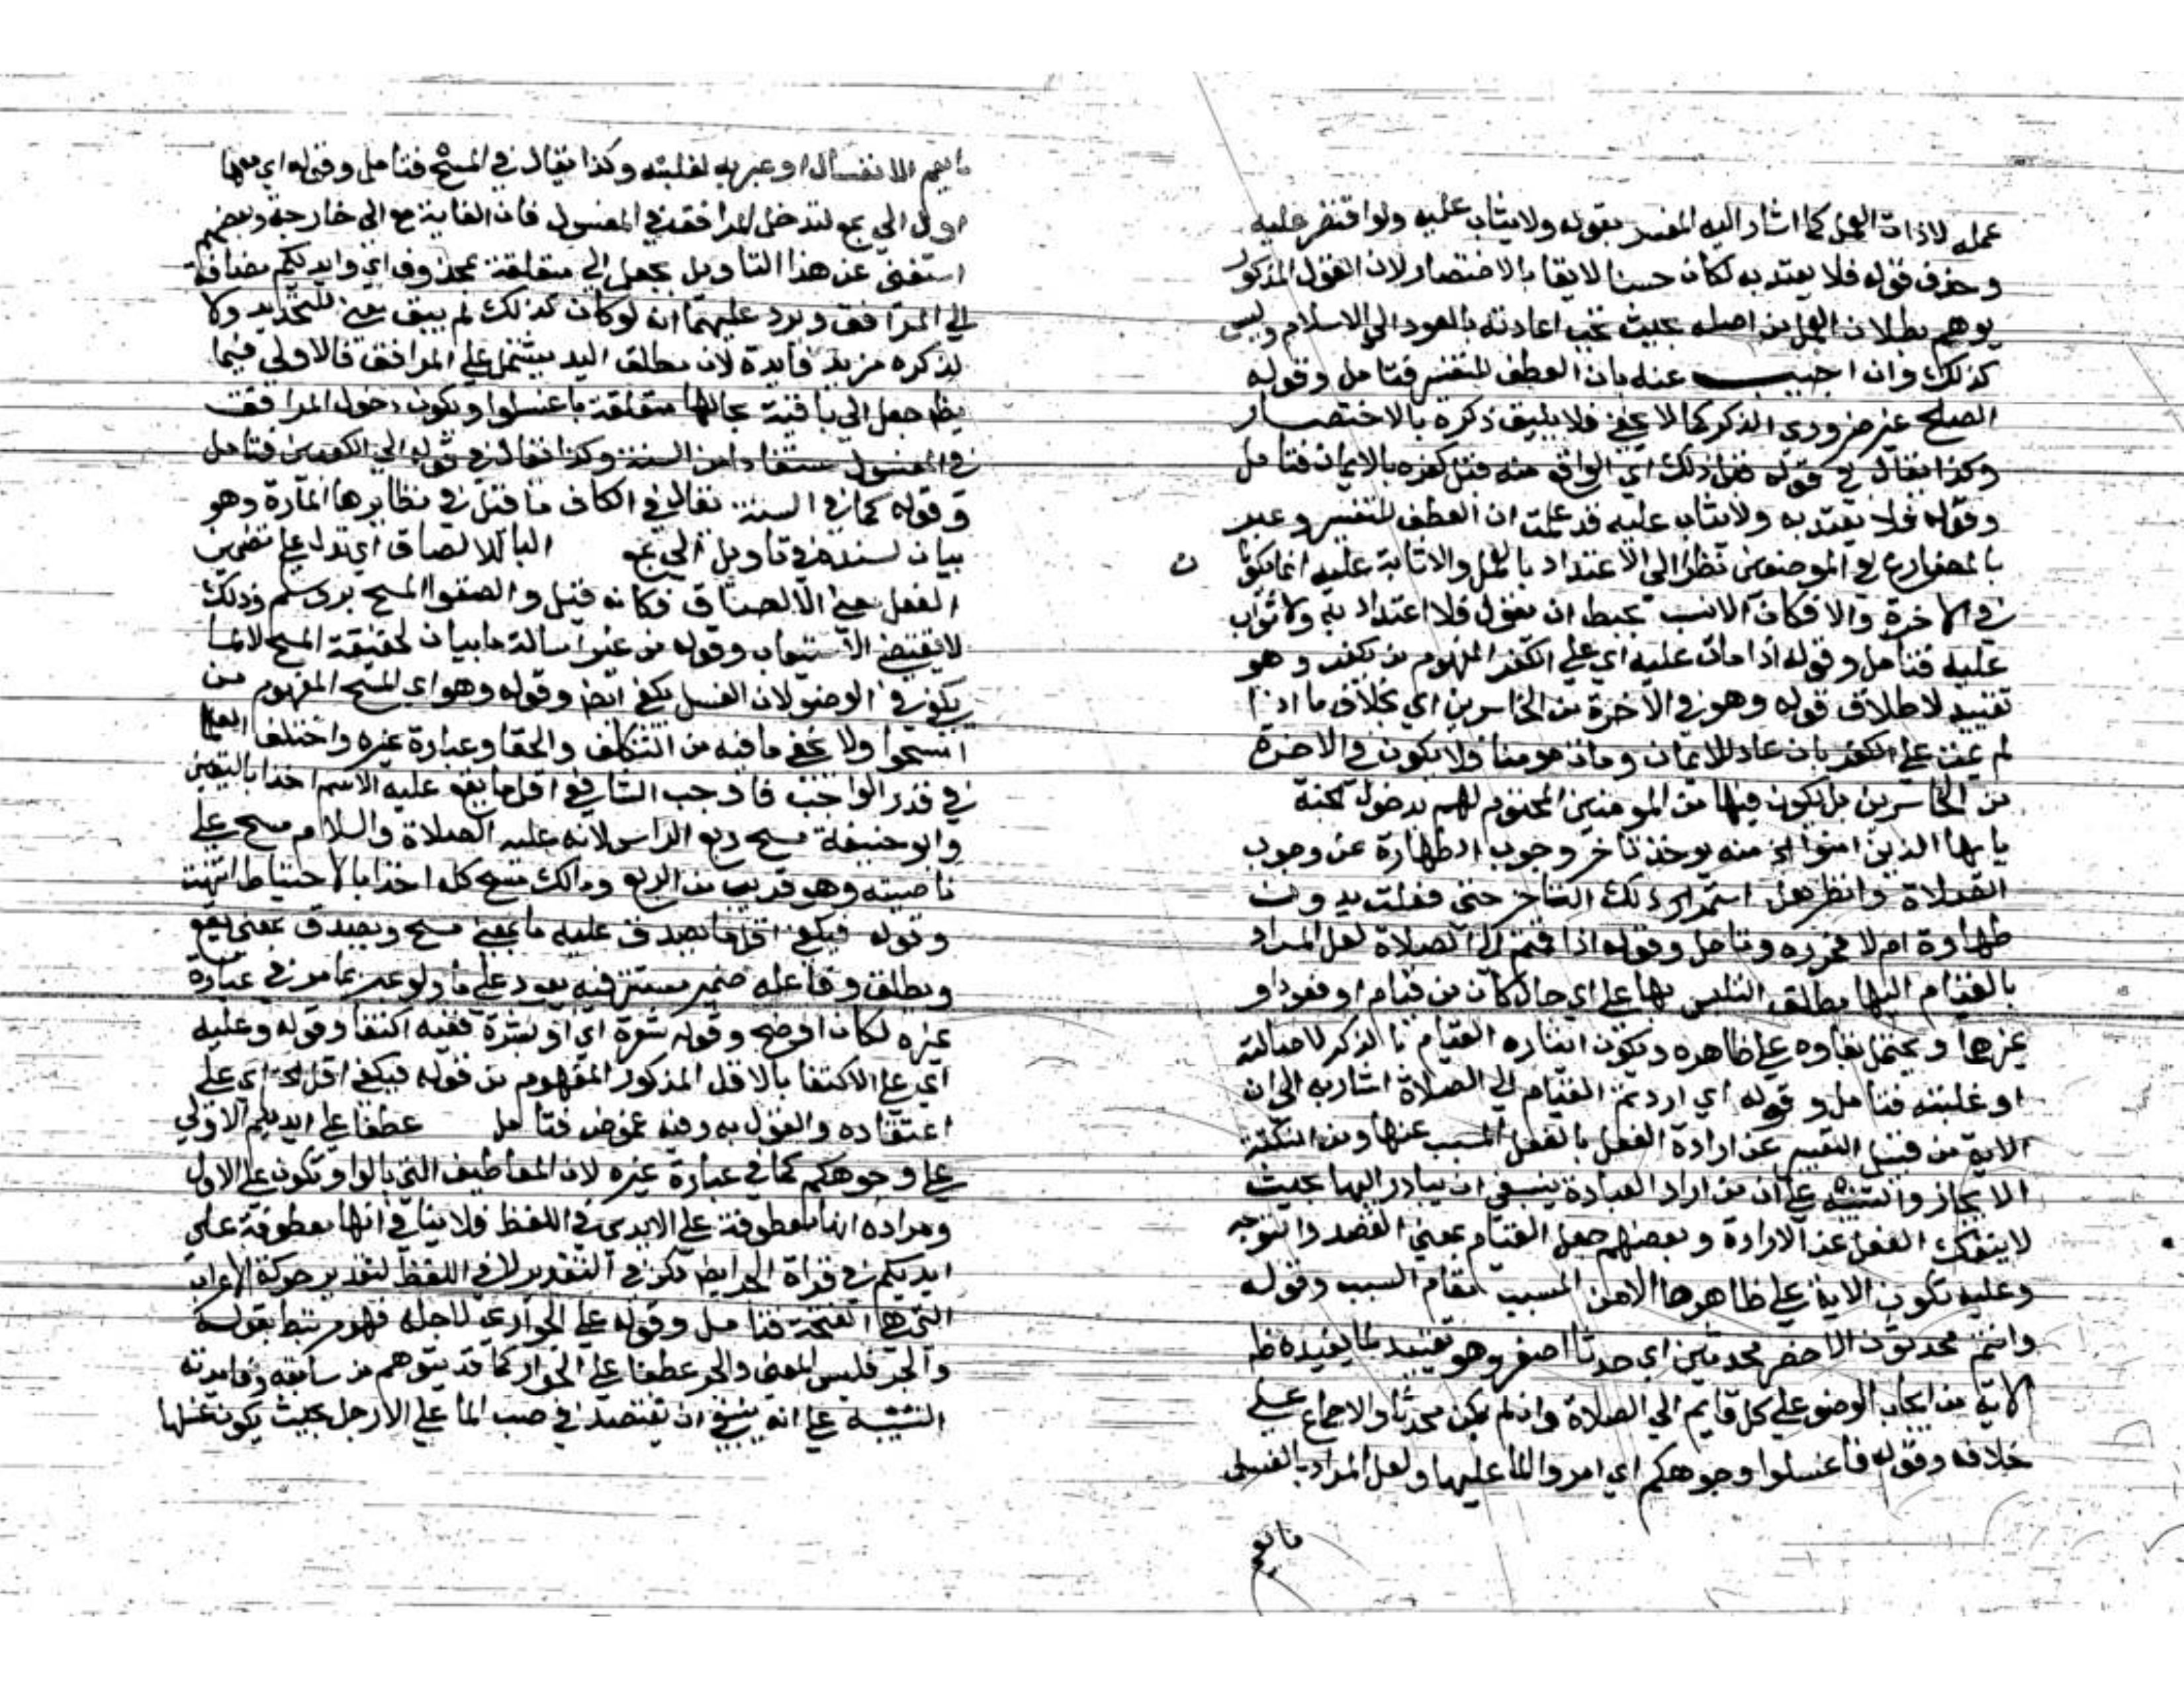 عمله لا ذات العمل كما اشار اليه المفسر بقوله ولا يثاب عليه ولو اقتصر عليه
وحذف قوله فلا يعتد به لكان حسنا لايقا بالاختصار لان القول المذكور
يوهم بطلان العمل من اصله بحيث تجب اعادته بالعود الى الاسلام وليس
كذلك وان اجيب عنه بان العطف للتفسير فتامل وقوله
الصالح غير ضروري الذكر كما لا يخفى فلا يليق ذكره بالاختصار
وكذا يقال في قوله قبل ذلك اي الواقع منه قبل كفره بالايمان فتامل
وقوله فلا يعتد به ولا يثاب عليه قد علمت ان العطف للتفسير وعبر
بالمضارع في الموضعين نظرا الى الاعتداد بالعمل والاثابة عليه انما يكون
في الاخرة والا فكان الانسب بحبط ان يقول فلا اعتداد به ولا ثواب
عليه فتامل وقوله اذا مات عليه اي على الكفر المفهوم من يكفر وهو
تقييد لاطلاق قوله وهو في الاخرة من الخاسرين اي بخلاف ما اذا
لم يمت على الكفر بان عاد للايمان ومات مومنا فلا يكون في الاخرة
من الخاسرين بل يكون فيها من المومنين المحتوم لهم بدخول الجنة
يا يها الذين امنوا الخ منه يوخذ تاخر وجوب الطهارة عن وجوب
الصلاة وانظر هل استمر ذلك التاخر حتى فعلت بدون
طهارة ام لا فحرره وتامل وقوله اذا قمتم الى الصلاة لعل المراد
بالقيام اليها مطلق التلبس بها على اي حال كان من قيام او قعود او
غيرها ويحتمل بقاوه على ظاهره ويكون ايثاره القيام بالذكر لاصالته
او غلبته فتامل وقوله اي اردتم القيام الى الصلاة اشار به الى ان
الاية من قبيل التعبير عن ارادة الفعل بالفعل المسبب عنها ومن النكتة
الايجاز والتنبيه على ان من اراد العبادة ينبغي ان يبادر اليها بحيث
لا ينفك الفعل عن الارادة وبعضهم جعل القيام بمعنى القصد والتوجه
وعليه تكون الاية على ظاهرها لا من المسبب مقام السبب وقوله
وانتم محدثون الاخصر محدثين اي حدثا اصغر وهو تقييد لما يفيده ظاهر
الاية من ايجاب الوضو على كل قايم الى الصلاة وان لم يكن محدثا والاجماع على
خلافه وقوله فاغسلوا وجوهكم اي امروا الما عليها ولعل المراد بالغسل
ما يعم
ما يعم الانغسال او عبر به لغلبته وكذا يقال في المسح فتامل وقوله اي معها
اول الى بمع لتدخل المرافق في المغسول فان الغاية مع الى خارجة وبعضهم
استغنى عن هذا التاويل بجعل الى متعلقة بمحذوف اي وايديكم مضافة
الى المرافق ويرد عليهما انه لو كان كذلك لم يبق معنى للتحديد ولا
لذكره مزيد فايدة لان مطلق اليد يشتمل على المرافق فالاولى فيما
يظهر جعل الى باقية بحالها متعلقة باغسلوا ويكون دخول المرافق
في المغسول مستفادا من السنة وكذا يقال في قوله الى الكعبين فتامل
وقوله كما في السنة يقال في الكاف ما قيل في نظايرها المارة وهو
بيان لسنده في تاويل الى بمع البا للالصاق اي تدل على تضمين
الفعل معنى الالصاق فكانه قيل والصقوا المسح بروسكم وذلك
لا يقتضي الاستيعاب وقوله من غير اسالة ما بيان لحقيقة المسح لا لما
يكفي في الوضو لان الغسل يكفي ايضا وقوله وهو اي المسح المفهوم من
امسحوا ولا يخفى ما فيه من التكلف والخفا وعبارة غيره واختلف العلما
في قدر الواجب فاوجب الشافعي اقل ما يقع عليه الاسم اخذا باليقين
وابو حنيفة مسح ربع الراس لانه عليه الصلاة والسلام مسح على
ناصيته وهو قريب من الربع ومالك مسح كله اخذا بالاحتياط انتهت
وقوله فيكفي اقل ما يصدق عليه ما بمعنى مسح ويصدق بمعنى يقع
ويطلق وفاعله ضمير مستتر فيه يعود على ما ولو عبر بما مر في عبارة
غيره لكان اوضح وقوله شعرة اي او بشرة ففيه اكتفا وقوله وعليه
اي على الاكتفا بالاقل المذكور المفهوم من قوله فيكفي اقل الخ اي على
اعتقاده والقول به وفيه غموض فتامل عطفا على ايديكم الاولى
على وجوهكم كما في عبارة غيره لان المعاطيف التي بالواو تكون على الاول
ومراده انها معطوفة على الايدي في اللفظ فلا ينافي انها معطوفة على
ايديكم في قراة الجر ايضا لكن في التقدير لا في اللفظ لتقدير حركة الاعراب
التي هي الفتحة فتامل وقوله على الجوار اي لاجله فهو مرتبط بقوله
والجر فليس المعنى والجر عطفا على الجوار كما قد يتوهم من سابقه وفايدته
التنبيه على انه ينبغي ان يقتصد في صب الما على الارجل بحيث يكون غسلها